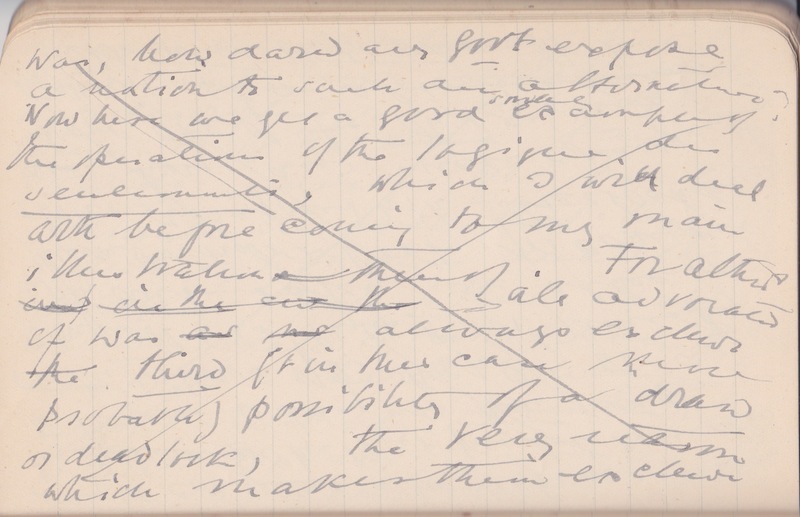 war, how dared any Govt expose
a nation to such an alternative?
Now here we get a good example of some
the operations of the logique des
sentiments, which I will deal
with before coming to my main
illustration thereof. For altho
in the all advocates
of war always exclude
the third (& in this case more
probable) possibility of a draw
or deadlock, the very reason
which makes them exclude